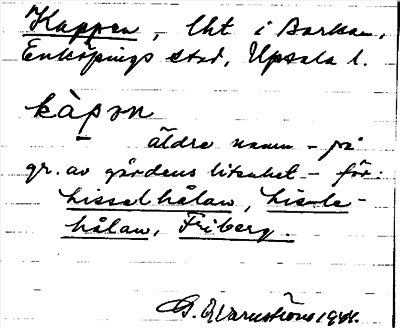 Kappen, lht i Barkan,
Enköpings stad, Upsala l.
kàpən
äldre namn – på
gr. av gårdens litenhet – för:
Lisselhålan, Lisle-
hålan, Friberg.
1941.